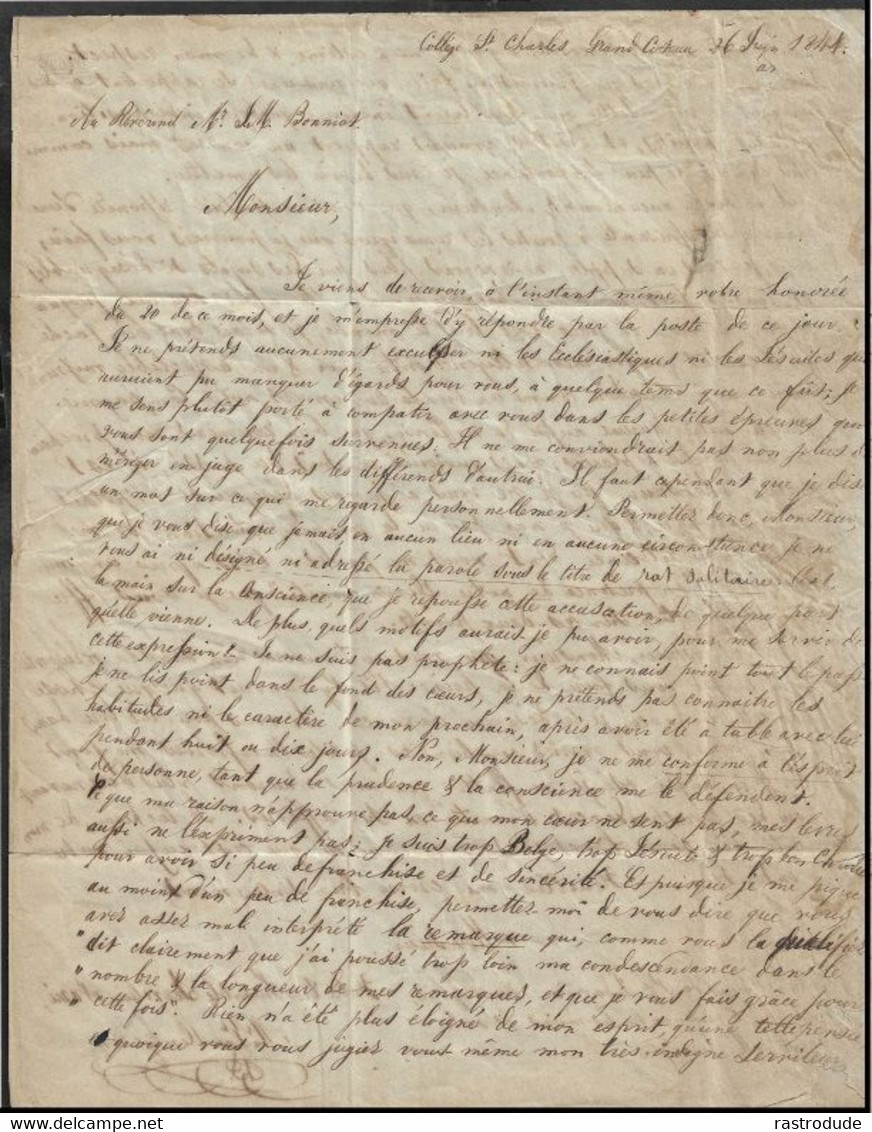 Collège St Charles, Grand Coteau 26 Juin 1844.
Au Révérend Mr J.M. Bonniot.
Monsieur,
Je viens de recevoir, à l'instant même votre honorée
du 20 de ce mois, et je m'empresse d'y répondre par la poste de ce jour.
Je ne prétends aucunement exculper ni les Ecclésiastiques ni les Jésuites qui
auraient pu manquer d'égards pour vous, à quelque tems que ce fût; je
me sens plutôt porté à compatir avec vous dans les petites épreuves qui
vous sont quelquefois survenues. Il ne me conviendrait pas non plus de
m'ériger en juge dans les différends d'autrui. Il faut cependant que je dise
un mot sur ce qui me regarde personnellement. Permettez donc, Monsieur,
que je vous dise que jamais, en aucun lieu ni en aucune circonstance je ne
vous ai ni désigné ni adressé la parole sous le titre de rat solitaire. C'est,
la main sur la conscience, que je repousse cette accusation, de quelque part
qu'elle vienne. De plus, quels motifs aurais-je pu avoir, pour me servir de
cette expression? Je ne suis pas prophète: je ne connais point tout le pays
je ne lis point dans le fond des cœurs, je ne prétends pas connaître les
habitudes ni le caractère de mon prochain, après avoir été à table avec lui
pendant huit ou dix jours. Non, Monsieur, je ne me conforme à l'esprit
de personne, tant que la prudence & la conscience me le défendent.
Ce que ma raison n'approuve pas, ce que mon cœur ne sent pas, mes levres
aussi ne l'expriment pas; je suis trop Belge, trop Jésuite & trop bon
pour avoir si peu de franchise et de sincérité. Et puisque je me pique
au moint d'un peu de franchise, permettez-moi de vous dire que vous
avez assez male interprété la remarque qui, comme vous la qualifiez
"dit clairement que j'ai poussé trop loin ma condescendance dans le
"nombre & la longueur de mes remarques, et que je vous fais grâce pour
"cette fois". Rien n'a été plus éloigné de mon esprit qu'une telle pensée
quoique vous vous jugiez vous même mon très-indigne serviteur
delcampe.net
rastrodude